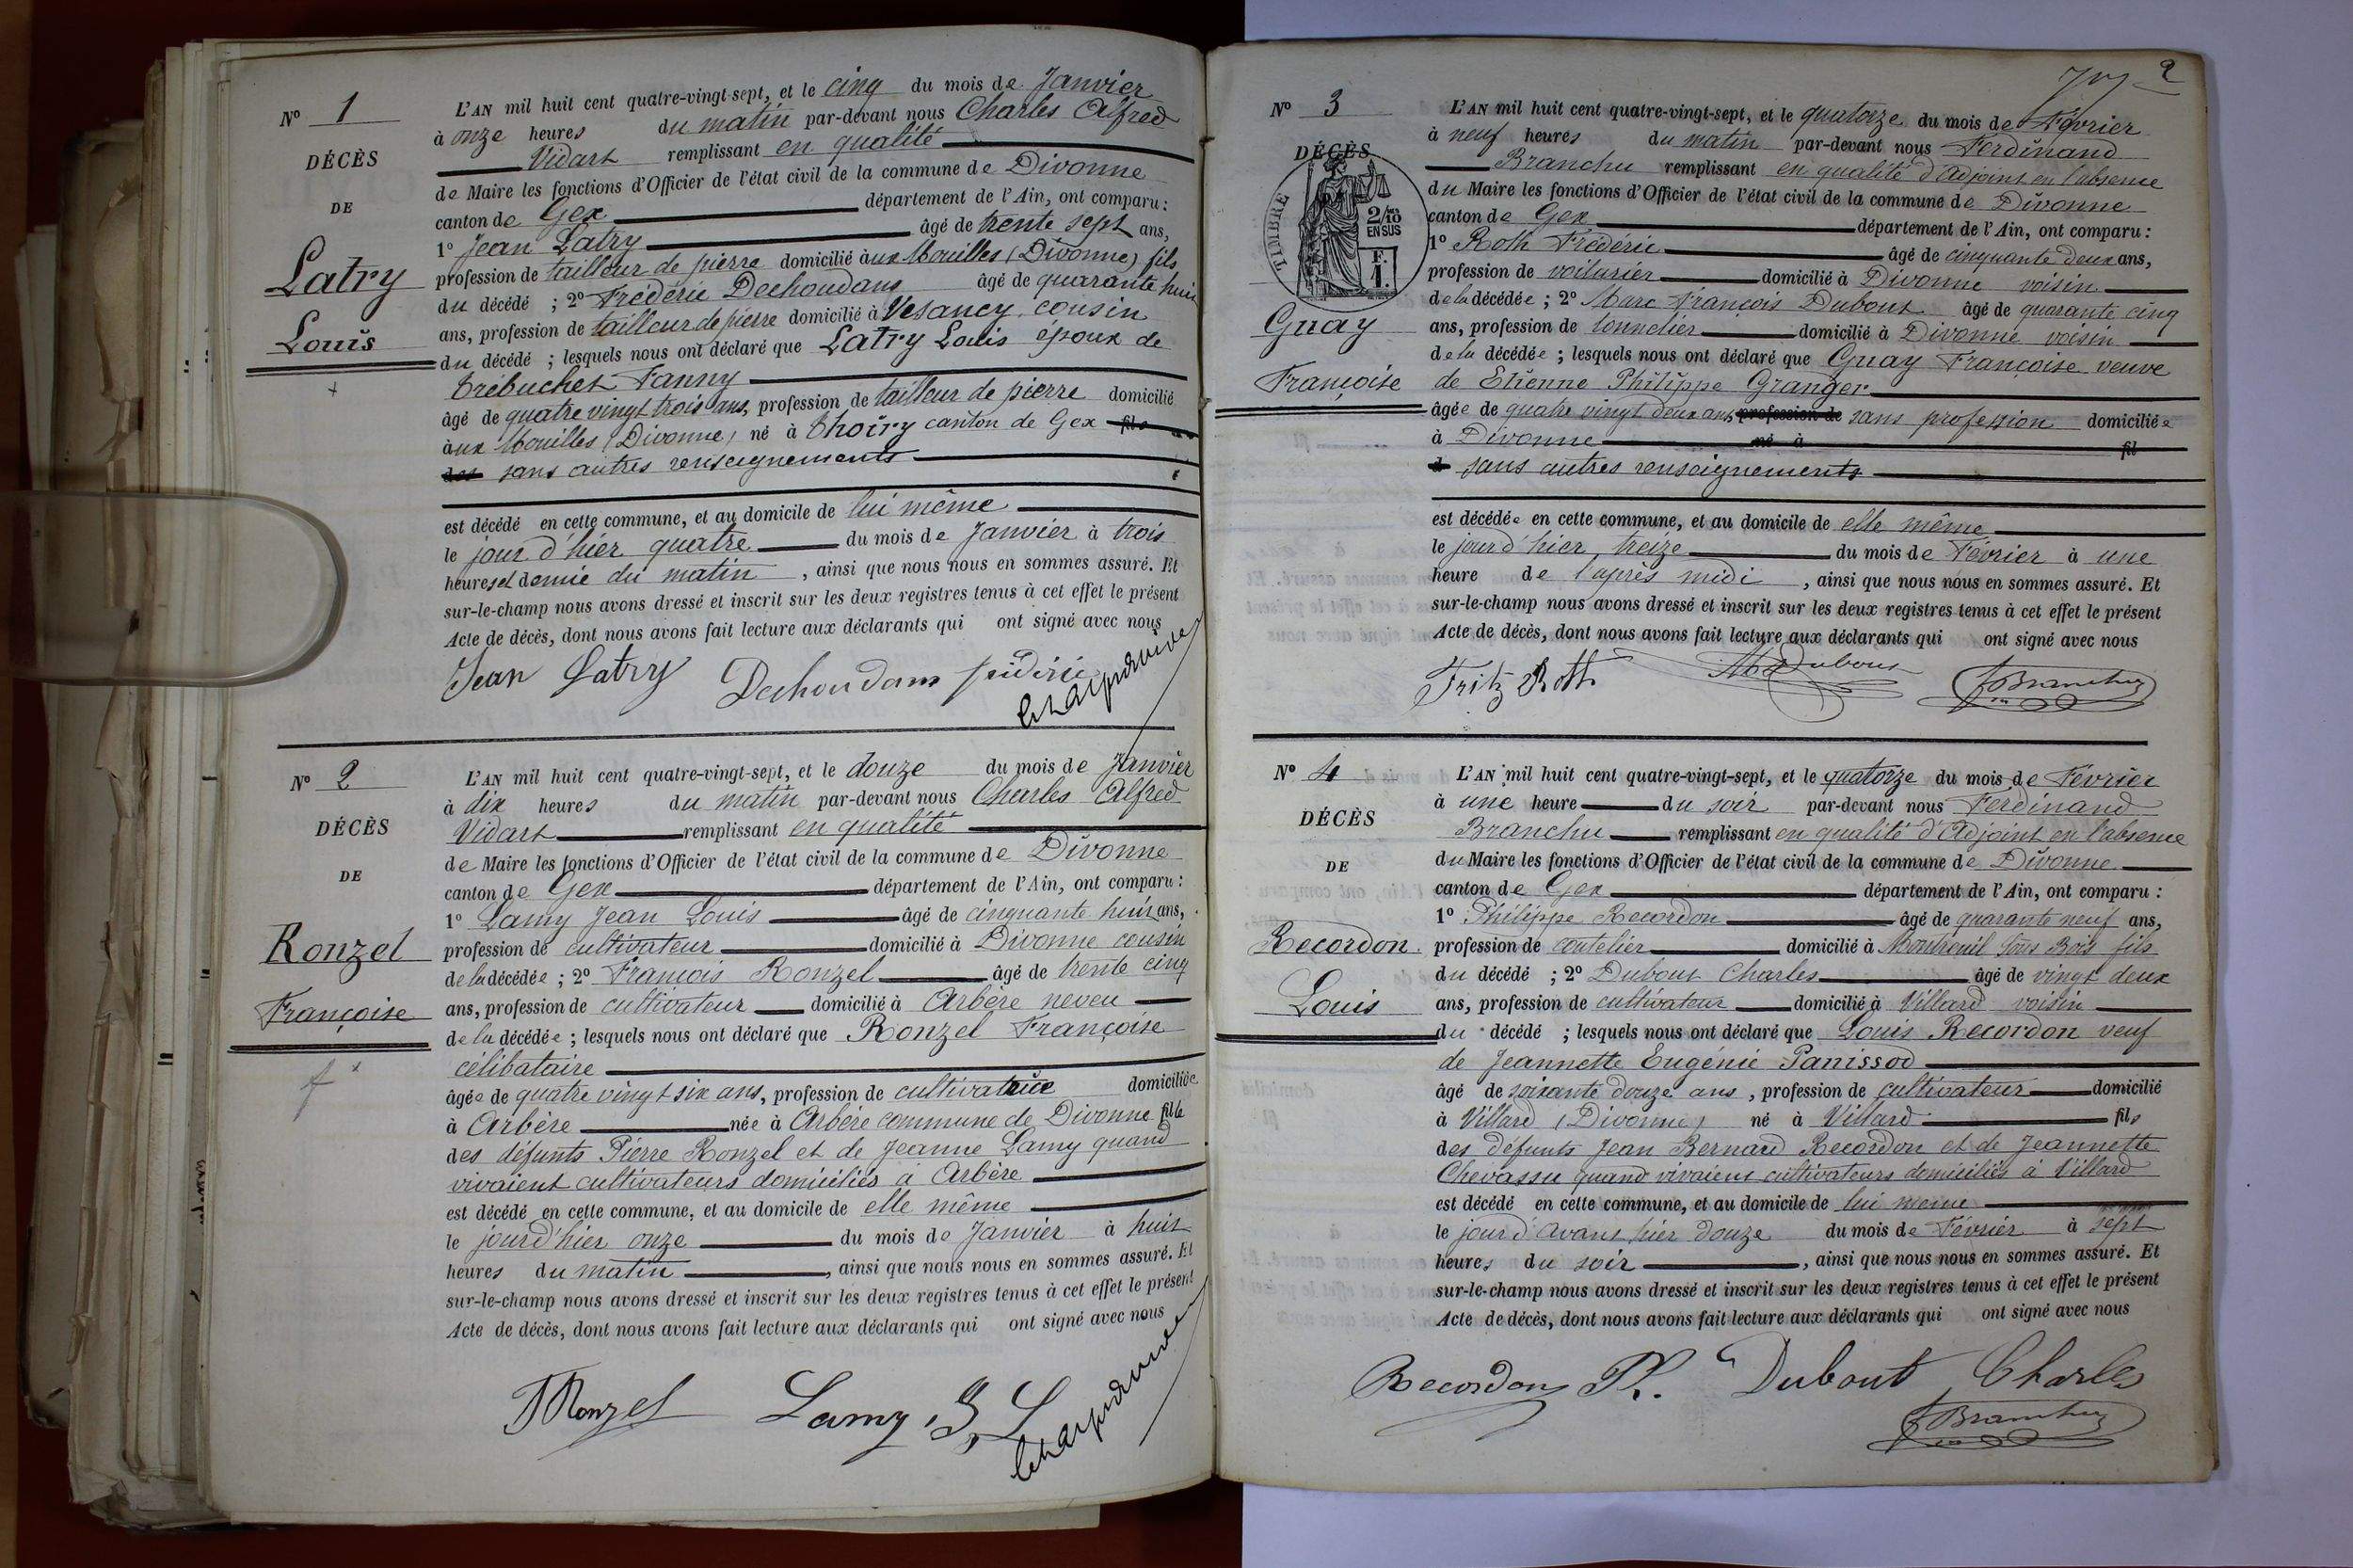 N° 1
DÉCÈS
DE
Latry
Louis
L'AN mil huit cent quatre-vingt-sept, et le cinq du mois de Janvier
à onze heures du matin par-devant nous Charles Alfred
Vidart remplissant en qualité
de Maire les fonctions d'Officier de l'état civil de la commune de Divonne
canton de Gex département de l'Ain, ont comparu :
1° Jean Latry âgé de trente sept ans,
profession de tailleur de pierre domicilié aux Mouilles (Divonne) fils
du décédé ; 2° Fréderic Dechoudans âgé de quarante huit
ans, profession de tailleur de pierre domicilié à Vesancy cousin
du décédé ; lesquels nous ont déclaré que Latry Louis époux de
Trébuchet Fanny
âgé de quatre vingt trois ans, profession de tailleur de pierre domicilié
aux Mouilles (Divonne) né à Thoiry canton de Gex fils
des sans autres renseignements
est décédé en cette commune, et au domicile de lui même
le jour d'hier quatre du mois de Janvier à trois
heures et demie du matin , ainsi que nous nous en sommes assuré. Et
sur-le-champ nous avons dressé et inscrit sur les deux registres tenus à cet effet le présent
Acte de décès, dont nous avons fait lecture aux déclarants qui ont signé avec nous
Jean Latry Dechoudans fréderic
N° 2
DÉCÈS
DE
Ronzel
Françoise
L'AN mil huit cent quatre-vingt-sept, et le douze du mois de Janvier
à dix heures du matin par-devant nous Charles Alfred
Vidart remplissant en qualité
de Maire les fonctions d'Officier de l'état civil de la commune de Divonne
canton de Gex département de l'Ain, ont comparu :
1° Lamy Jean Louis âgé de cinquante huit ans,
profession de cultivateur domicilié à Divonne cousin
de la décédée ; 2° François Ronzel âgé de trente cinq
ans, profession de cultivateur domicilié à Arbère neveu
de la décédée ; lesquels nous ont déclaré que Ronzel Françoise
célibataire
âgée de quatre vingt six ans, profession de cultivatrice domiciliée
à Arbère née à Arbère commune de Divonne fille
des défunts Pierre Ronzel et de Jeanne Lamy quand
vivaient cultivateurs domiciliés à Arbère
est décédé en cette commune, et au domicile de elle même
le jour d'hier onze du mois de Janvier à huit
heures du matin , ainsi que nous nous en sommes assuré. Et
sur-le-champ nous avons dressé et inscrit sur les deux registres tenus à cet effet le présent
Acte de décès, dont nous avons fait lecture aux déclarants qui ont signé avec nous
F Ronzel Lamy, J, L
2
N° 3
DÉCÈS
TIMBRE
2/10
EN SUS
F.
1.
Guay
Françoise
L'AN mil huit cent quatre-vingt-sept, et le quatorze du mois de Février
à neuf heures du matin par-devant nous Ferdinand
Branchu remplissant en qualité d'Adjoint en l'absence
du Maire les fonctions d'Officier de l'état civil de la commune de Divonne
canton de Gex département de l'Ain, ont comparu :
1° Roth Fréderic âgé de cinquante deux ans,
profession de voiturier domicilié à Divonne voisin
de la décédée ; 2° Marc François Dubout âgé de quarante cinq
ans, profession de tonnelier domicilié à Divonne voisin
de la décédée ; lesquels nous ont déclaré que Guay Françoise veuve
de Etienne Philippe Granger
âgée de quatre vingt deux ans, profession de sans profession domiciliée
à Divonne né à fil
d sans autres renseignements
est décédée en cette commune, et au domicile de elle même
le jour d'hier, treize du mois de Février à une
heure de l'après midi , ainsi que nous nous en sommes assuré. Et
sur-le-champ nous avons dressé et inscrit sur les deux registres tenus à cet effet le présent
Acte de décès, dont nous avons fait lecture aux déclarants qui ont signé avec nous
Fritz Roth Dubout F Branchu
N° 4
DÉCÈS
DE
Recordon
Louis
L'AN mil huit cent quatre-vingt-sept, et le quatorze du mois de Février
à une heure du soir par-devant nous Ferdinand
Branchu remplissant en qualité d'Adjoint en l'absence
du Maire les fonctions d'Officier de l'état civil de la commune de Divonne
canton de Gex département de l'Ain, ont comparu :
1° Philippe Recordon âgé de quarante neuf ans,
profession de coutelier domicilié à Montreuil sous Bois fils
du décédé ; 2° Dubout Charles âgé de vingt deux
ans, profession de cultivateur domicilié à Villard voisin
du décédé ; lesquels nous ont déclaré que Louis Recordon veuf
de Jeannette Eugénie Panissod
âgé de soixante douze ans , profession de cultivateur domicilié
à Villard (Divonne) né à Villard fils
des défunts Jean Bernard Recordon et de Jeannette
Chevassu quand vivaient cultivateurs domiciliés à Villard
est décédé en cette commune, et au domicile de lui même
le jour d'avant hier douze du mois de Février à sept
heures du soir , ainsi que nous nous en sommes assuré. Et
sur-le-champ nous avons dressé et inscrit sur les deux registres tenus à cet effet le présent
Acte de décès, dont nous avons fait lecture aux déclarants qui ont signé avec nous
Recordon Ph. Dubout Charles
F Branchu